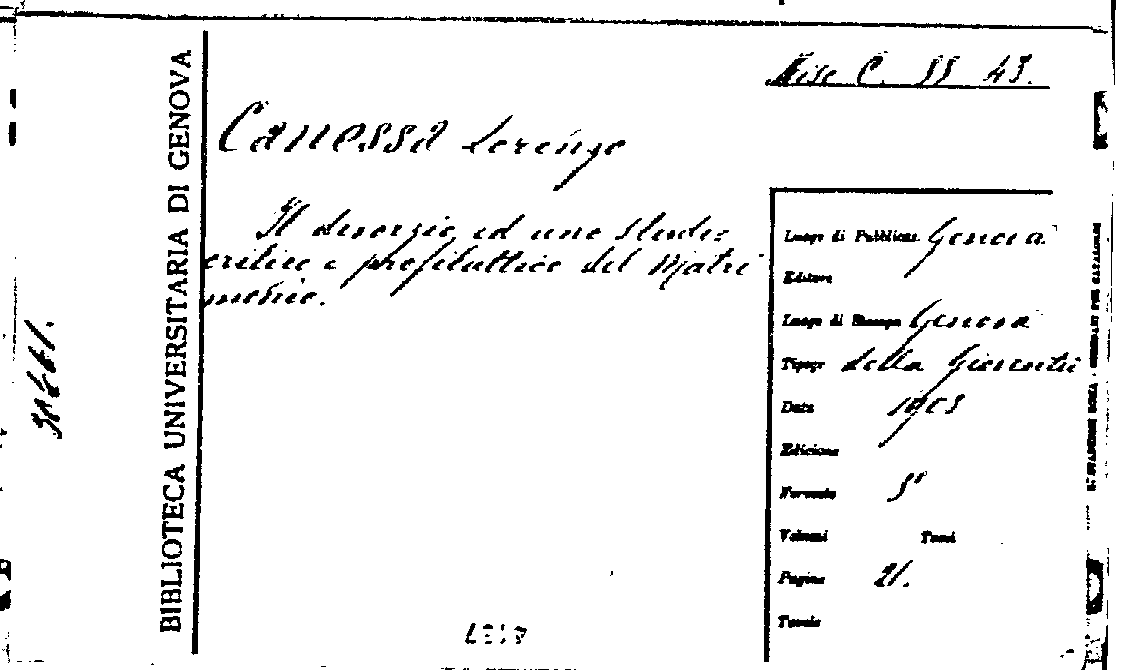 BIBLIOTECA UNIVERSITARIA DI GENOVA
Misc C. 55 43.
Canessa Lorenzo
Il divorzio ed uno studio
critico e profilattico del Matri
monio.
Luogo di Pubblicaz. Genova
Editore
Luogo di Stampa Genova
Tipogr della Gioventù
Data 1903
Edizione
Formato 8°
Volumi Tomi
Pagine 21.
Tavole